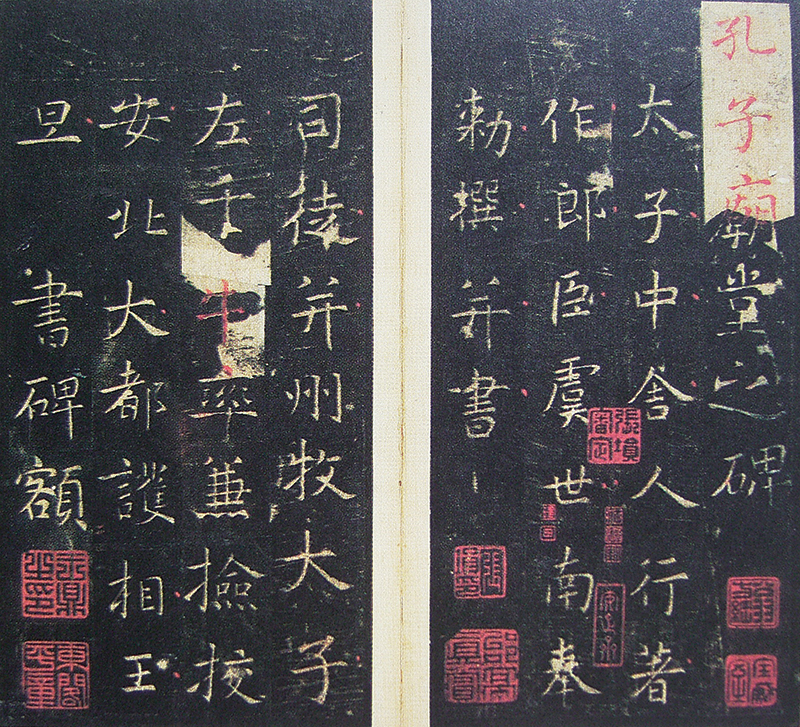 孔子廟堂之碑
太子中舍人行著
作郎臣虞世南奉
勅撰并書
司徒并州牧太子
左千牛率兼撿挍
安北大都護相王
旦書碑額
張塤審定